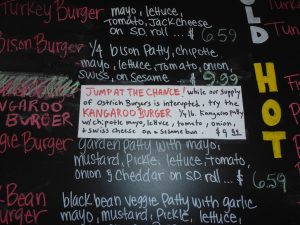 Turkey Burger mayo, lettuce,
Tomato, Jack cheese
on SD roll ... $6.59
Bison Burger 1/4 bison Patty, chipotle
mayo, lettuce, Tomato, onion,
Swiss, on Sesame $9.99
JUMP AT THE CHANCE! While our supply
of Ostrich Burgers is interupted, try the
KANGAROO BURGER. 1/4 lb. Kangaroo patty
w/ chipotle mayo, lettuce, tomato, onion,
+ swiss cheese on a sesame bun. $9
KANGAROO
BURGER
Veggie Burger garden Patty with mayo,
mustard, Pickle, lettuce, Tomato,
onion & Cheddar on SD roll ... $6.59
Black Bean
Burger black bean Veggie Patty with garlic
mayo, mustard, Pickle, lettuce,
OLD
HOT